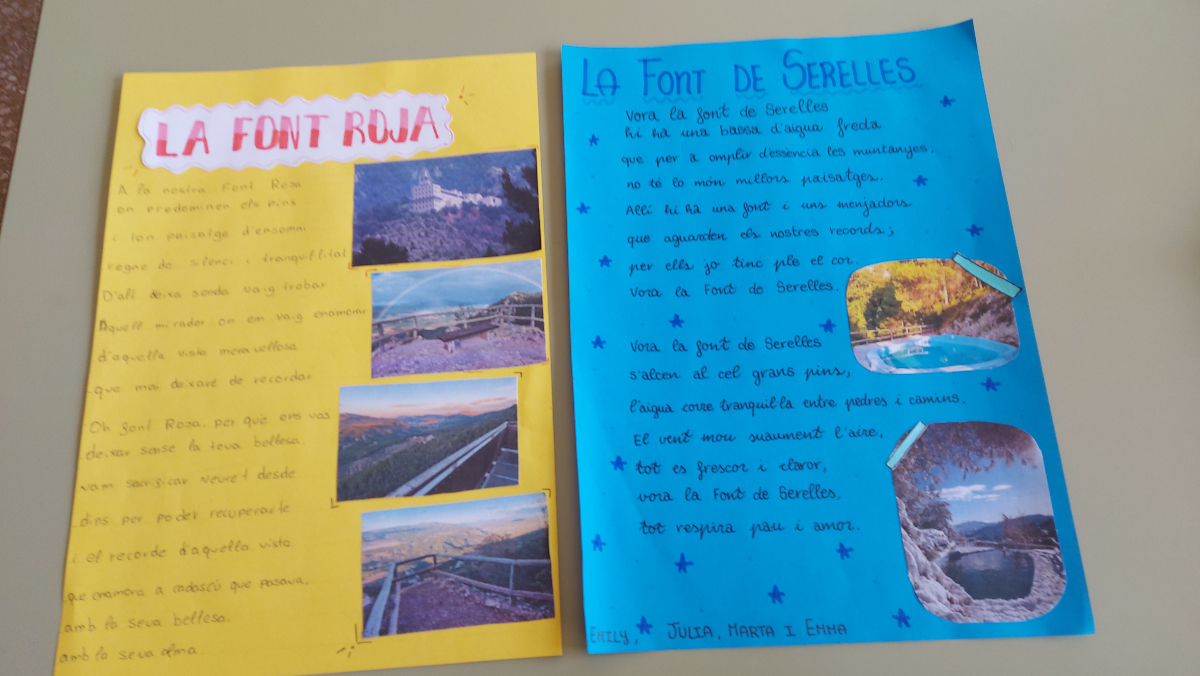 LA FONT ROJA
A la nostra Font Rosa
on predominen els pins
i ton paisatge d'ensomni
regne de silenci i tranquil·litat
D'alt deixa senda vaig trobar
Aquell mirador on em vaig enamorar
d'aquella vista meravellosa
que mai deixaré de recordar
Oh font Rosa, per que ens vas
deixar sense la teva bellesa,
vam sacrificar veure't desde
dins per poder recuperarte
i el recorde d'aquella vista
que enamora a cadascú que passava,
amb la seva bellesa.
amb la seva alma
LA FONT DE SERELLES
Vora la font de Serelles
hi hà una bassa d'aigua freda
que per a omplir d'essència les muntanyes,
no té lo món millors paisatges.
Allí hi hà una font i uns menjadors
que aguarden els nostres records;
per ells jo tinc ple el cor.
Vora la Font de Serelles.
Vora la font de Serelles
s'alcen al cel grans pins,
l'aigua corre tranquil·la entre pedres i camins.
El vent mou suaument l'aire,
tot es frescor i claror,
vora la Font de Serelles,
tot respira pau i amor.
EMILY, JULIA, MARTA I EMMA